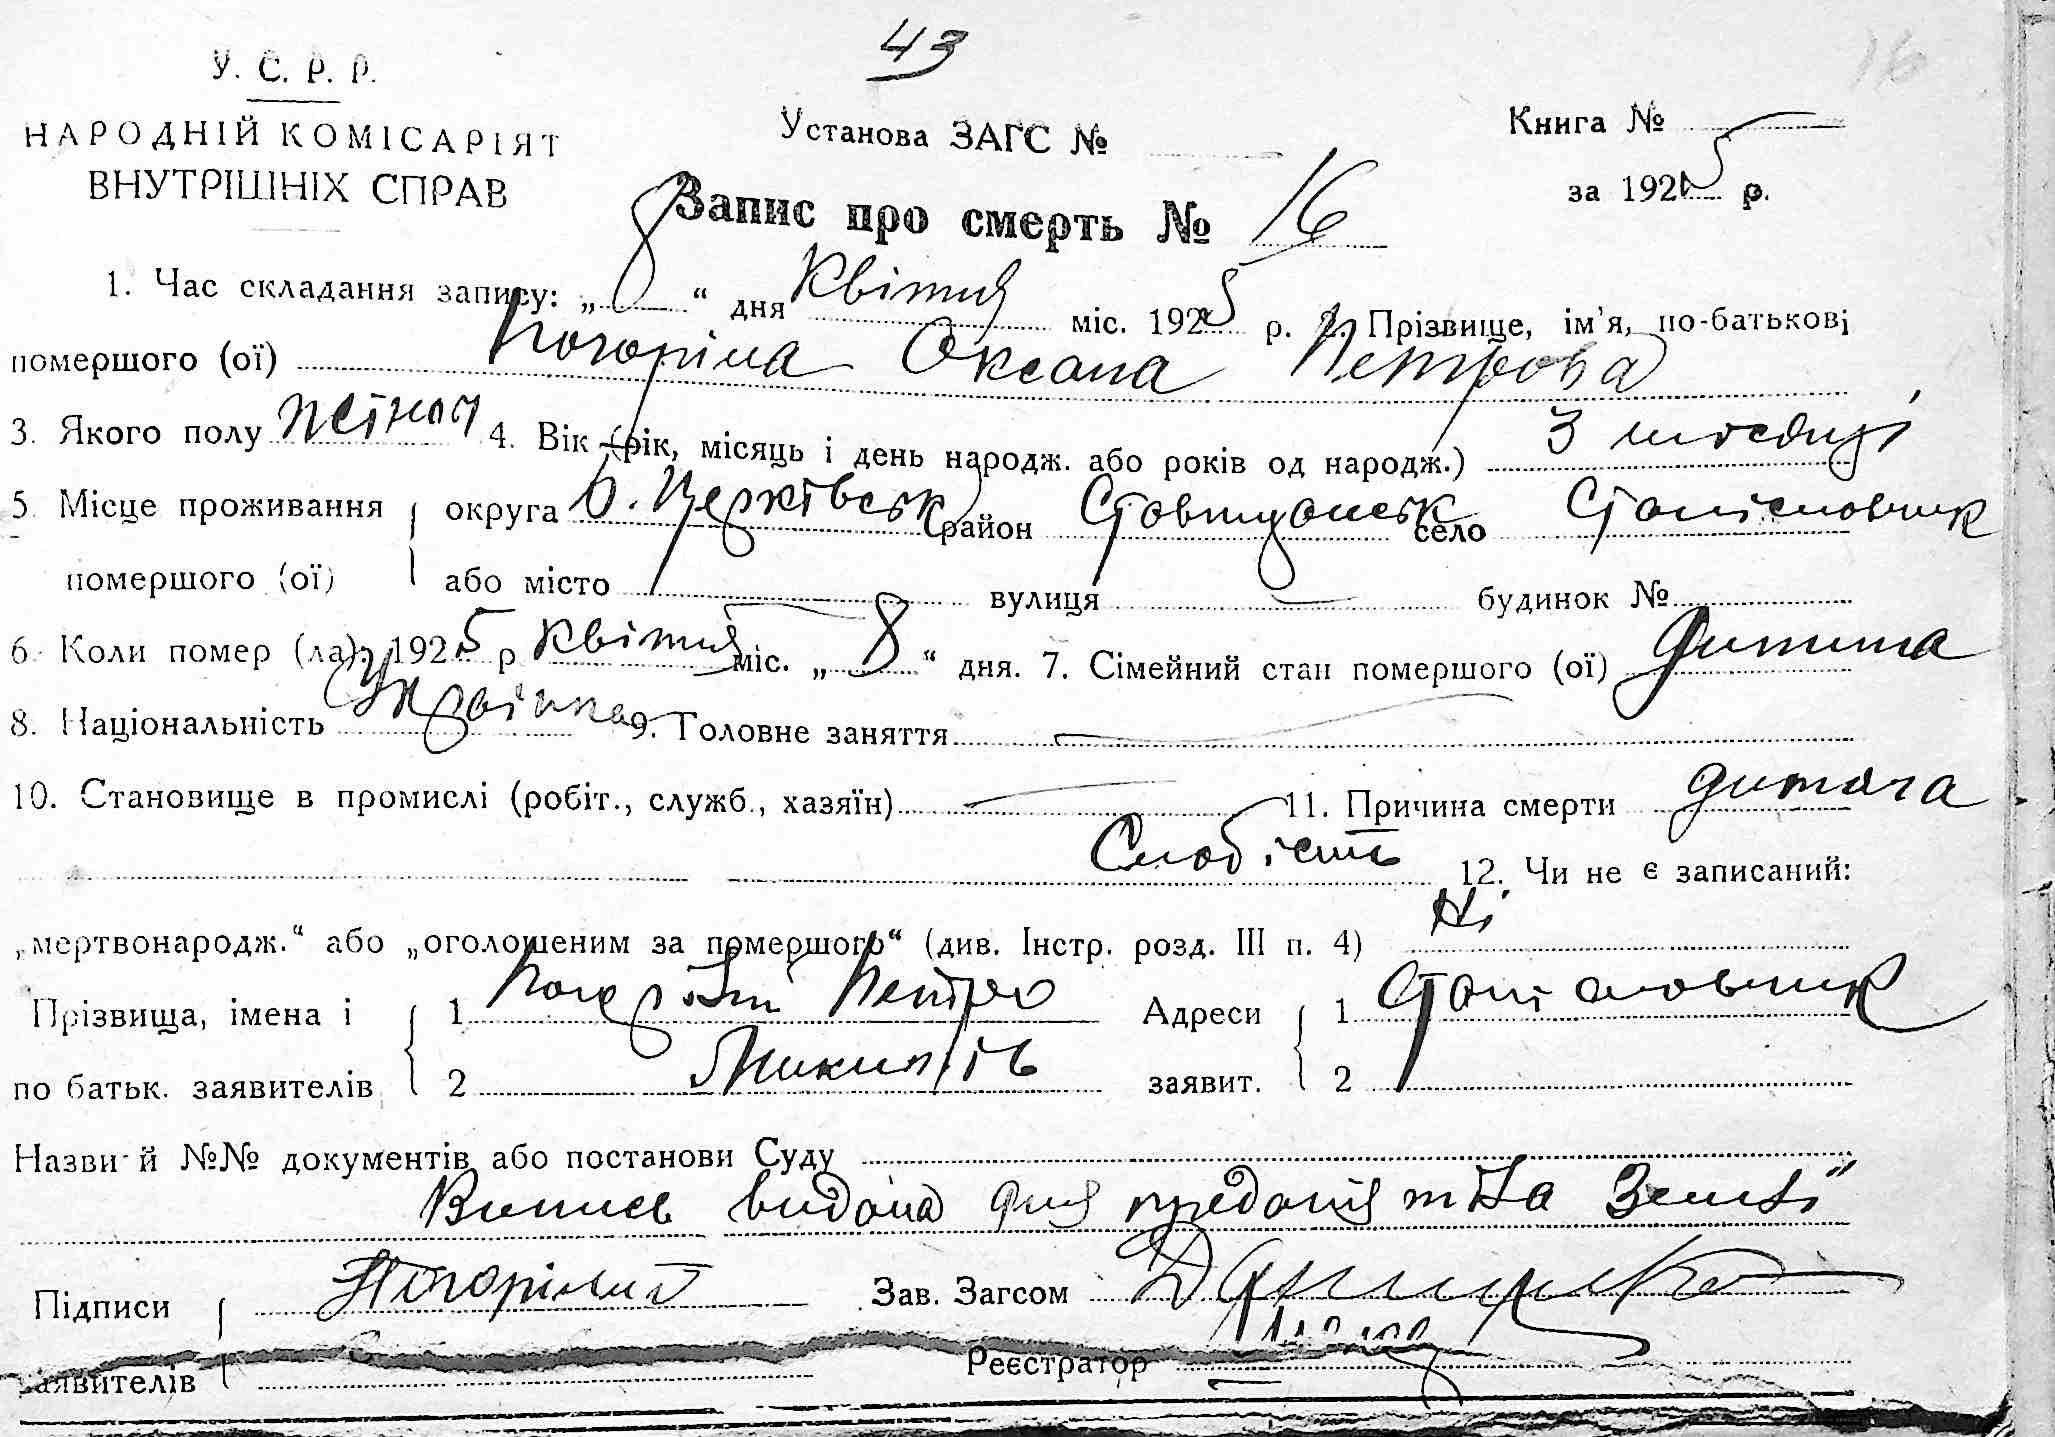 43
16
У. С. Р. Р.
НАРОДНІЙ КОМІСАРІЯТ
ВНУТРІШНІХ СПРАВ
Установа ЗАГС №
Книга №
за 1925 р.
Запис про смерть № 16
1. Час складання запису: „ 8 “ дня Квітня міс. 1925 р. 2. Прізвище, ім'я, по-батькові
помершого (ої) Погоріла Оксана Петрова
3. Якого полу жіноч 4. Вік (рік, місяць і день народж. або років од народж.) 3 місяці
5. Місце проживання округа Б. Церківськ район Ставищанськ село Станіславчик
помершого (ої) або місто вулиця будинок №
6. Коли помер (ла): 1925 р Квітня міс. „ 8 “ дня. 7. Сімейний стан помершого (ої) дитина
8. Національність Українка 9. Головне заняття
10. Становище в промислі (робіт., служб., хазяїн) 11. Причина смерти дитяча
слабість 12. Чи не є записаний:
„мертвонародж.“ або „оголошеним за помершого“ (див. Інстр. розд. III п. 4) Ні
Прізвища, імена і 1 Петро Адреси 1 Станіславчик
по батьк. заявителів 2 заявит. 2
Назви й №№ документів або постанови Суду
Випись видана для предания тѣла Землѣ"
Підписи Погорілий Зав. Загсом
заявителів Реєстратор